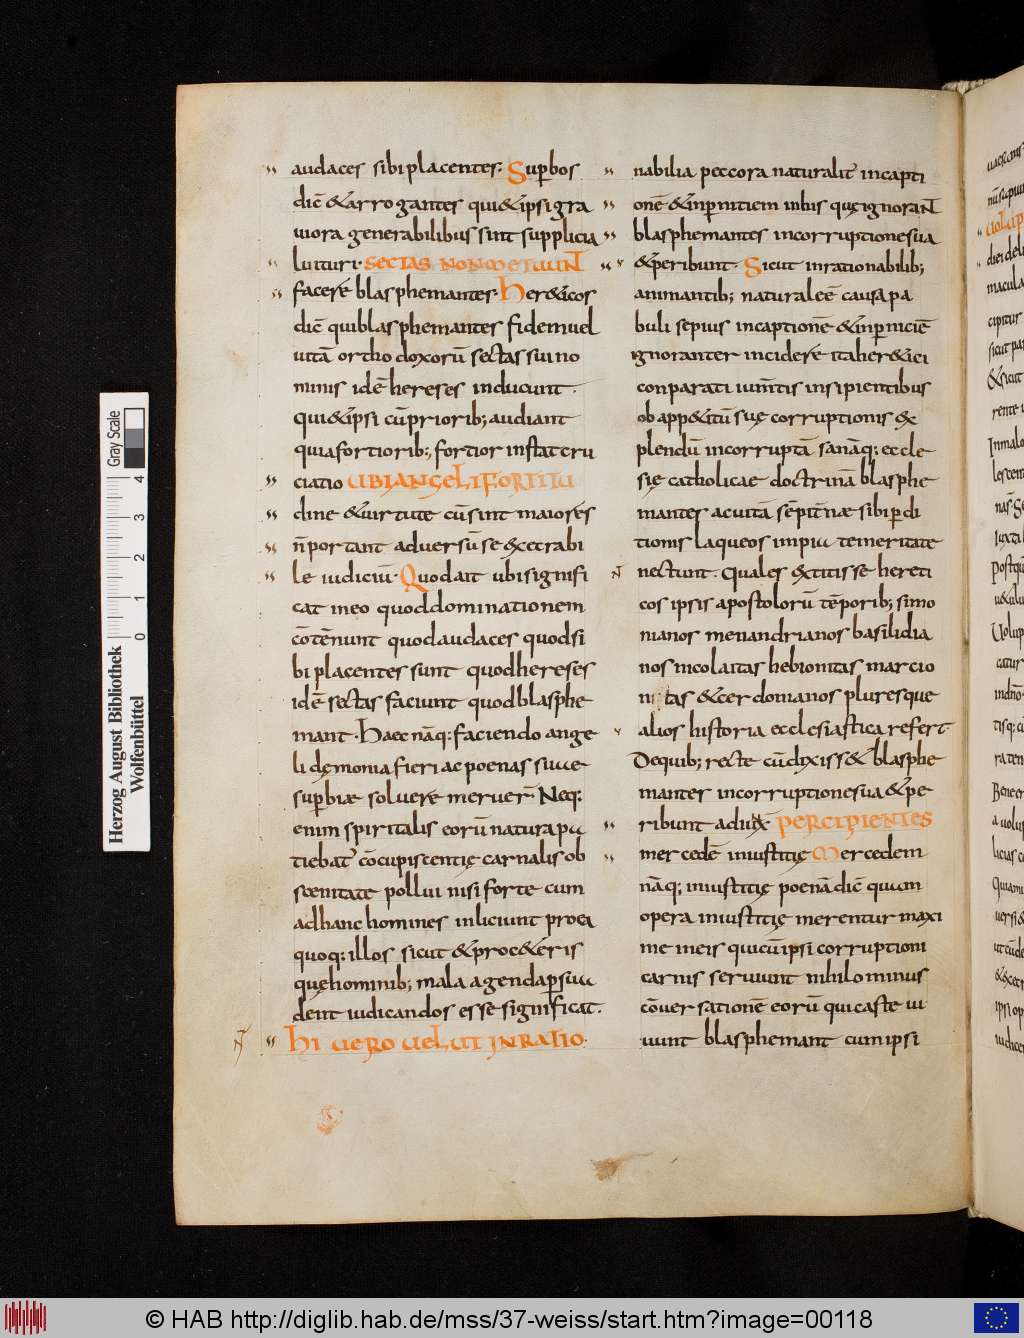 audaces sibi placentes· Sup̱bos
dic̄ & arrogantes qui & ipsi gra
uiora generabilibus sint supplicia
luituri· SECTAS NON METUUNT
facere blasphemantes· Her&icos
dic̄ qui blasphemantes fidem uel
uitā orthodoxorū sectas sui no
minis idē hereses inducunt·
qui & ipsi cū priorib; audiant
quia fortiorib; fortior instat cru
ciatio UBI ANGELI FORTITU
dine & uirtute cū sint maiores
n̄ portant aduersū se execrabi
le iudiciū· Quod ait ubi signifi
cat in eo quod dominationem
cōtēnunt quod audaces quod si
bi placentes sunt quod hereses
idē sectas faciunt quod blasphe
mant· Haec nāq: faciendo ange
li dęmonia fieri ac poenas suae
sup̱biae soluere meruer̄· Neq:
enim spiritalis eorū natura pa
tiebat̄ cōcupiscentię carnalis ob
scenitate pollui nisi forte cum
ad hanc homines inliciunt proea
quoq: illos sicut & proc&eris
quę hominib; mala agenda p̱sua
dent iudicandos esse significat·
HI UERO UELUT INRATIO·
nabilia peccora naturalit̄ in capti
onē & in p̱nitiem in his quę ignorant
blasphemantes in corruptione sua
& peribunt· Sicut inrationabilib;
animantib; naturale ē causa pa
buli sepius in captionē & in p̱niciē
ignoranter incidere ita her&ici
conparati ium̄tis insipientibus
ob app&itū suę corruptionis ex
plendū incorruptā sanāq; eccle
się catholicae doctrinā blasphe
mantes ac uitā sēpit̄nae sibi p̱di
tionis laqueos impia temeritate
nectunt· Quales extitisse hereti
cos ipsis apostolorū tēporib; simo
nianos menandrianos basilidia
nos nicolaitas hebionitas marcio
nitas & cerdonianos pluresque
alios historia ecclesiastica refert·
De quib; recte cū dixiss& blasphe
mantes in corruptione sua & pe
ribunt adiux̄ PERCIPIENTES
mercedē iniustitię Mercedem
nāq; iniustitię poenā dic̄ quam
opera iniustitię merentur maxi
me in eis qui cū ipsi corruptioni
carnis seruiunt nihilominus
cōuersationē eorū qui caste ui
uunt blasphemant cum ipsi
Gray Scale
Herzog August Bibliothek
Wolfenbüttel
0 1 2 3 4
© HAB http://diglib.hab.de/mss/37-weiss/start.htm?image=00118